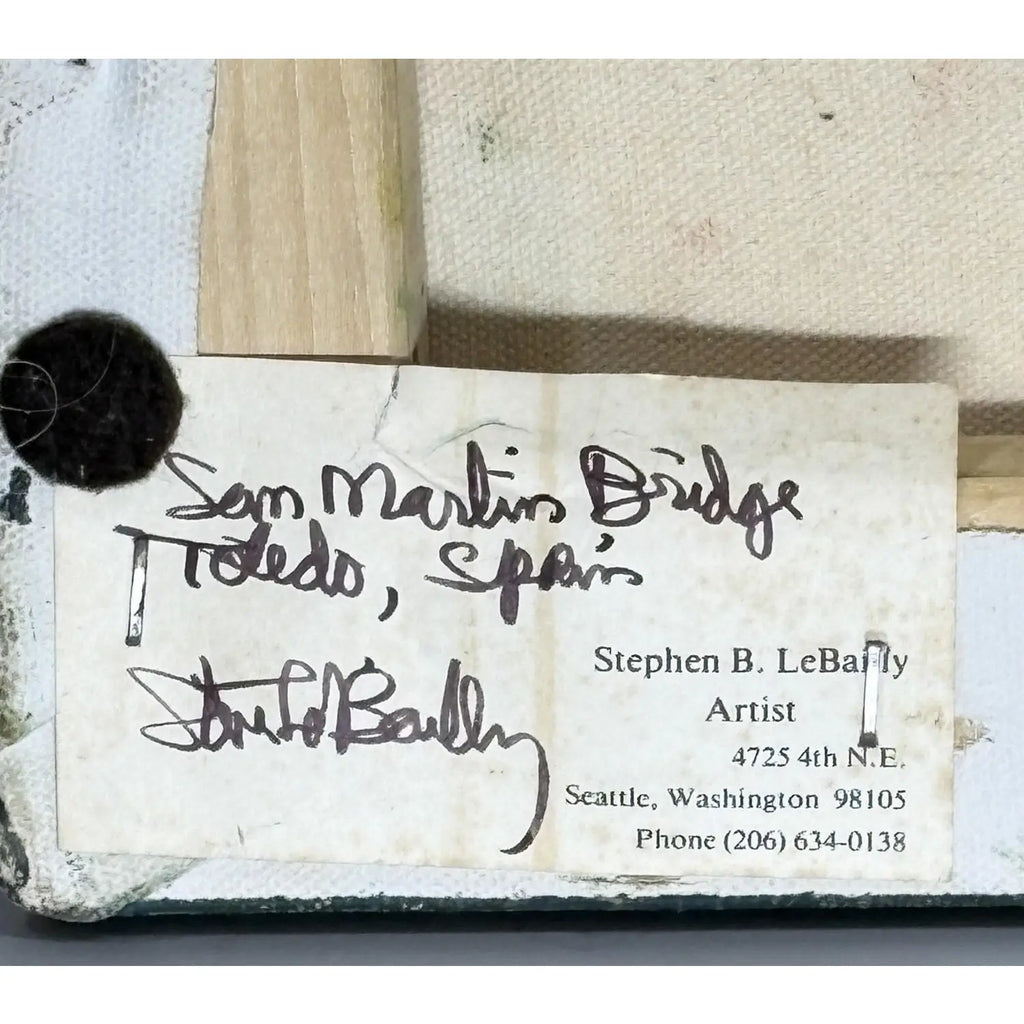 San Martin Bridge
Toledo, Spain
Steve LeBailly
Stephen B. LeBailly
Artist
4725 4th N.E.
Seattle, Washington 98105
Phone (206) 634-0138